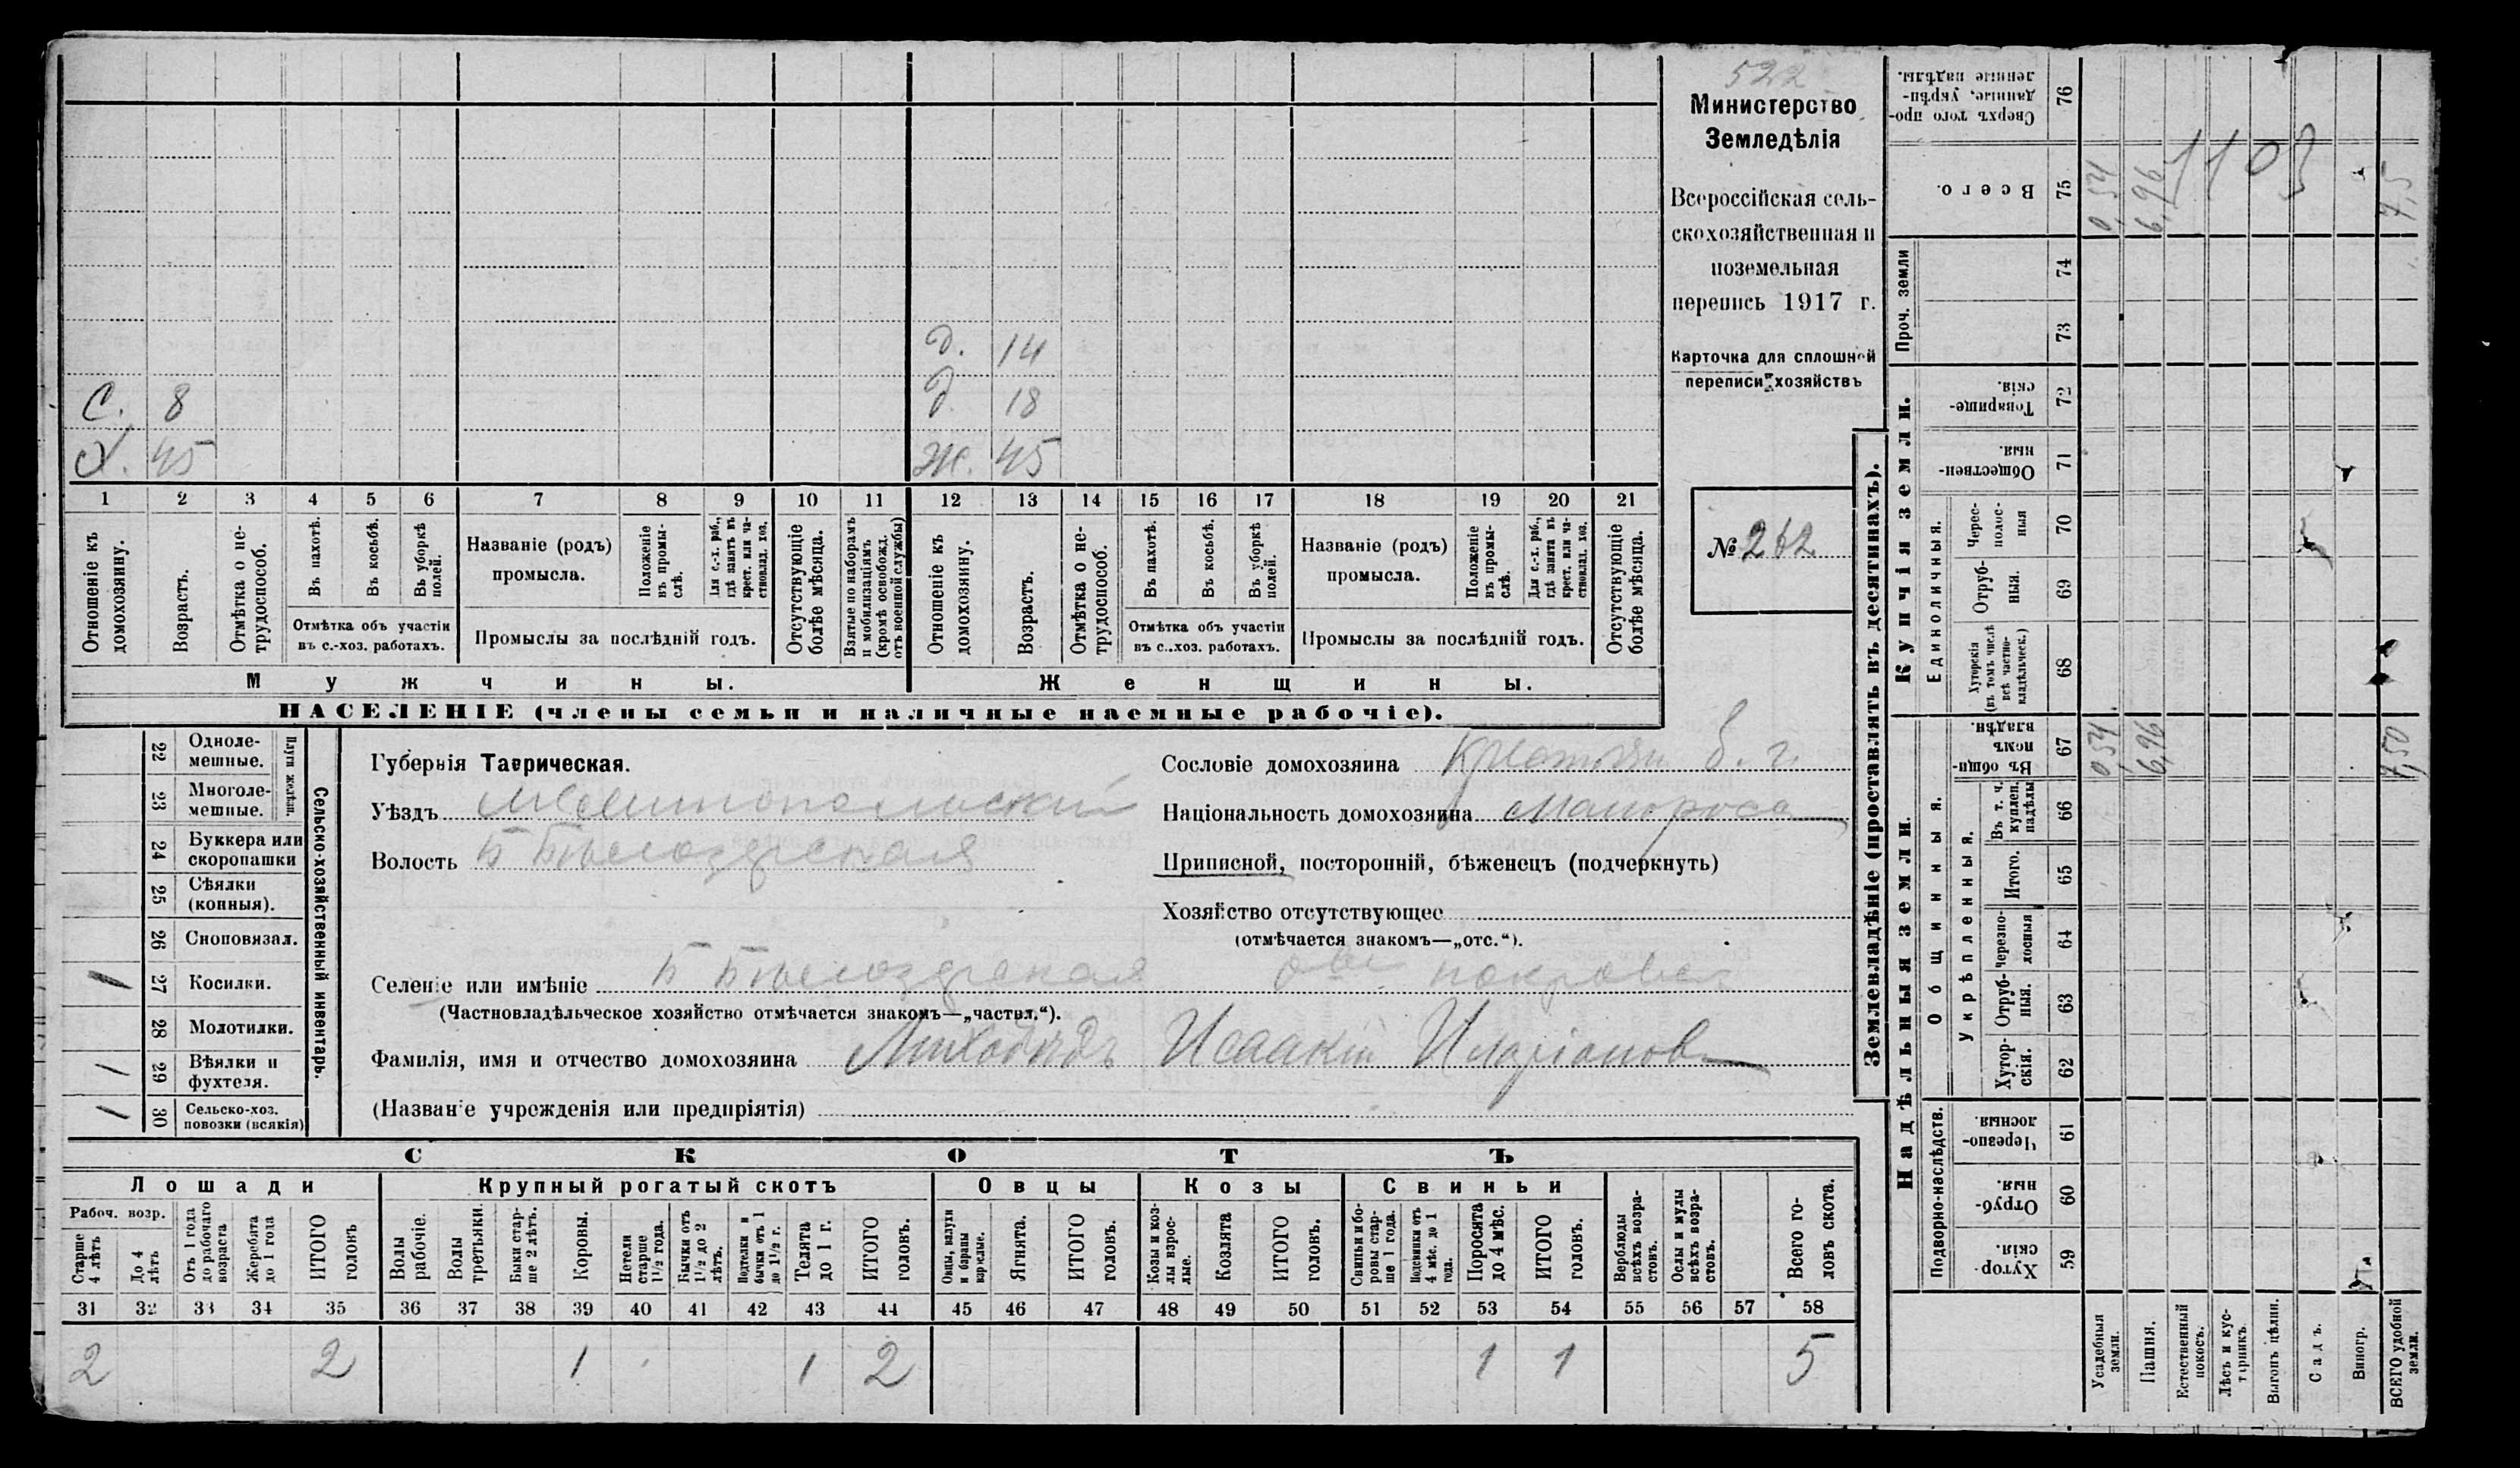 522
Министерство
Земледѣлія
Всероссійская сель-
скохозяйственная и
поземельная
перепись 1917 г.
Карточка для сплошной
переписи хозяйствъ
№ 262
д. 14
С. 8 д. 18
Х. 45 Ж. 45
1 2 3 4 5 6 7 8 9 10 11 12 13 14 15 16 17 18 19 20 21
Отношеніе къ домохозяину.
Возрастъ.
Отмѣтка о не-трудоспособ.
Въ пахотѣ.
Въ косьбѣ.
Въ уборкѣ полей.
Отмѣтка объ участіи
въ с.-хоз. работахъ.
Названіе (родъ)
промысла.
Положеніе въ промы-слѣ.
Для с.-х. раб., гдѣ занятъ въ крест. или ча-стновлад. хоз.
Промыслы за послѣдній годъ.
Отсутствующіе болѣе мѣсяца.
Взятые по наборамъ и мобилизаціямъ (кромѣ освобожд. отъ военной службы)
Отношеніе къ домохозяину.
Возрастъ.
Отмѣтка о не-трудоспособ.
Въ пахотѣ.
Въ косьбѣ.
Въ уборкѣ полей.
Отмѣтка объ участіи
въ с..хоз. работахъ.
Названіе (родъ)
промысла.
Положеніе въ промы-слѣ.
Для с.-х. раб., гдѣ занята въ крест. или ча-стновлад. хоз.
Промыслы за послѣдній годъ.
Отсутствующіе болѣе мѣсяца.
Мужчины.
Женщины.
НАСЕЛЕНІЕ (члены семьи и наличные наемные рабочіе).
Сельско-хозяйственный инвентарь.
Плуги желѣзн.
22 Одноле-мешные.
23 Многоле-мешные.
24 Буккера или скоропашки
25 Сѣялки (конныя).
26 Сноповязал.
1 27 Косилки.
28 Молотилки.
1 29 Вѣялки и фухтеля.
1 30 Сельско-хоз. повозки (всякія)
Губернія Таврическая.
Уѣздъ Мелитопольскій
Волость Б Бѣлозерская
Селеніе или имѣніе Б Бѣлозерская покровск
(Частновладѣльческое хозяйство отмѣчается знакомъ—„частвл.“).
Сословіе домохозяина Крестьян б. г.
Національность домохозяина малоросс
Приписной, посторонній, бѣженецъ (подчеркнуть)
Хозяйство отсутствующее
(отмѣчается знакомъ—„отс.“).
Фамилія, имя и отчество домохозяина Лиходѣдъ Исаакій Иларіонов
(Названіе учрежденія или предпріятія)
СКОТЪ
Лошади Крупный рогатый скотъ Овцы Козы Свиньи
Рабоч. возр.
Старше 4 лѣтъ
До 4 лѣтъ
Отъ 1 года до рабочаго возраста
Жеребята до 1 года
ИТОГО головъ
Волы рабочіе.
Волы третьяки.
Быки стар-ше 2 лѣтъ.
Коровы.
Нетели старше 1½ года.
Бычки отъ 1½ до 2 лѣтъ.
Подтелки и бычки отъ 1 до 1½ г.
Телята до 1 г.
ИТОГО головъ.
Овцы, валухи и бараны взрослые.
Ягнята.
ИТОГО головъ.
Козы и коз-лы взрос-лые.
Козлята
ИТОГО головъ.
Свиньи и бо-ровы стар-ше 1 года.
Подсвинки отъ 4 мѣс. до 1 года.
Поросята до 4 мѣс.
ИТОГО головъ.
Верблюды всѣхъ возра-стовъ.
Ослы и мулы всѣхъ возра-стовъ.
Всего го-ловъ скота.
31 32 33 34 35 36 37 38 39 40 41 42 43 44 45 46 47 48 49 50 51 52 53 54 55 56 57 58
2 2 1 1 2 1 1 5
Землевладѣніе (проставлять въ десятинахъ).
Надѣльныя земли.
Купчія земли.
Проч. земли
Подворно-наслѣдств.
Общинныя.
Укрѣпленныя.
Единоличныя.
Сверхъ того про-данные, укрѣп-ленные надѣлы. 76
Всего. 75
74
73
Товарище-скія. 72
Обществен-ныя. 71
Черес-полос-ныя 70
Отруб-ныя. 69
Хуторскія (въ томъ числѣ всѣ частно-владѣльческ.) 68
Въ общин-номъ владѣн. 67
Въ т. ч. куплен. надѣлы 66
Итого. 65
Черезпо-лосныя 64
Отруб-ныя. 63
Хутор-скія. 62
Черезпо-лосныя 61
Отруб-ныя. 60
Хутор-скія. 59
Усадебныя земли. 0,54 0,54
Пашня. 6,96 6,96
Естественный покосъ.
Лѣсъ и кус-тарникъ.
Выгонъ цѣлин.
Садъ.
Виногр.
ВСЕГО удобной земли. 7,50 7,5
1103